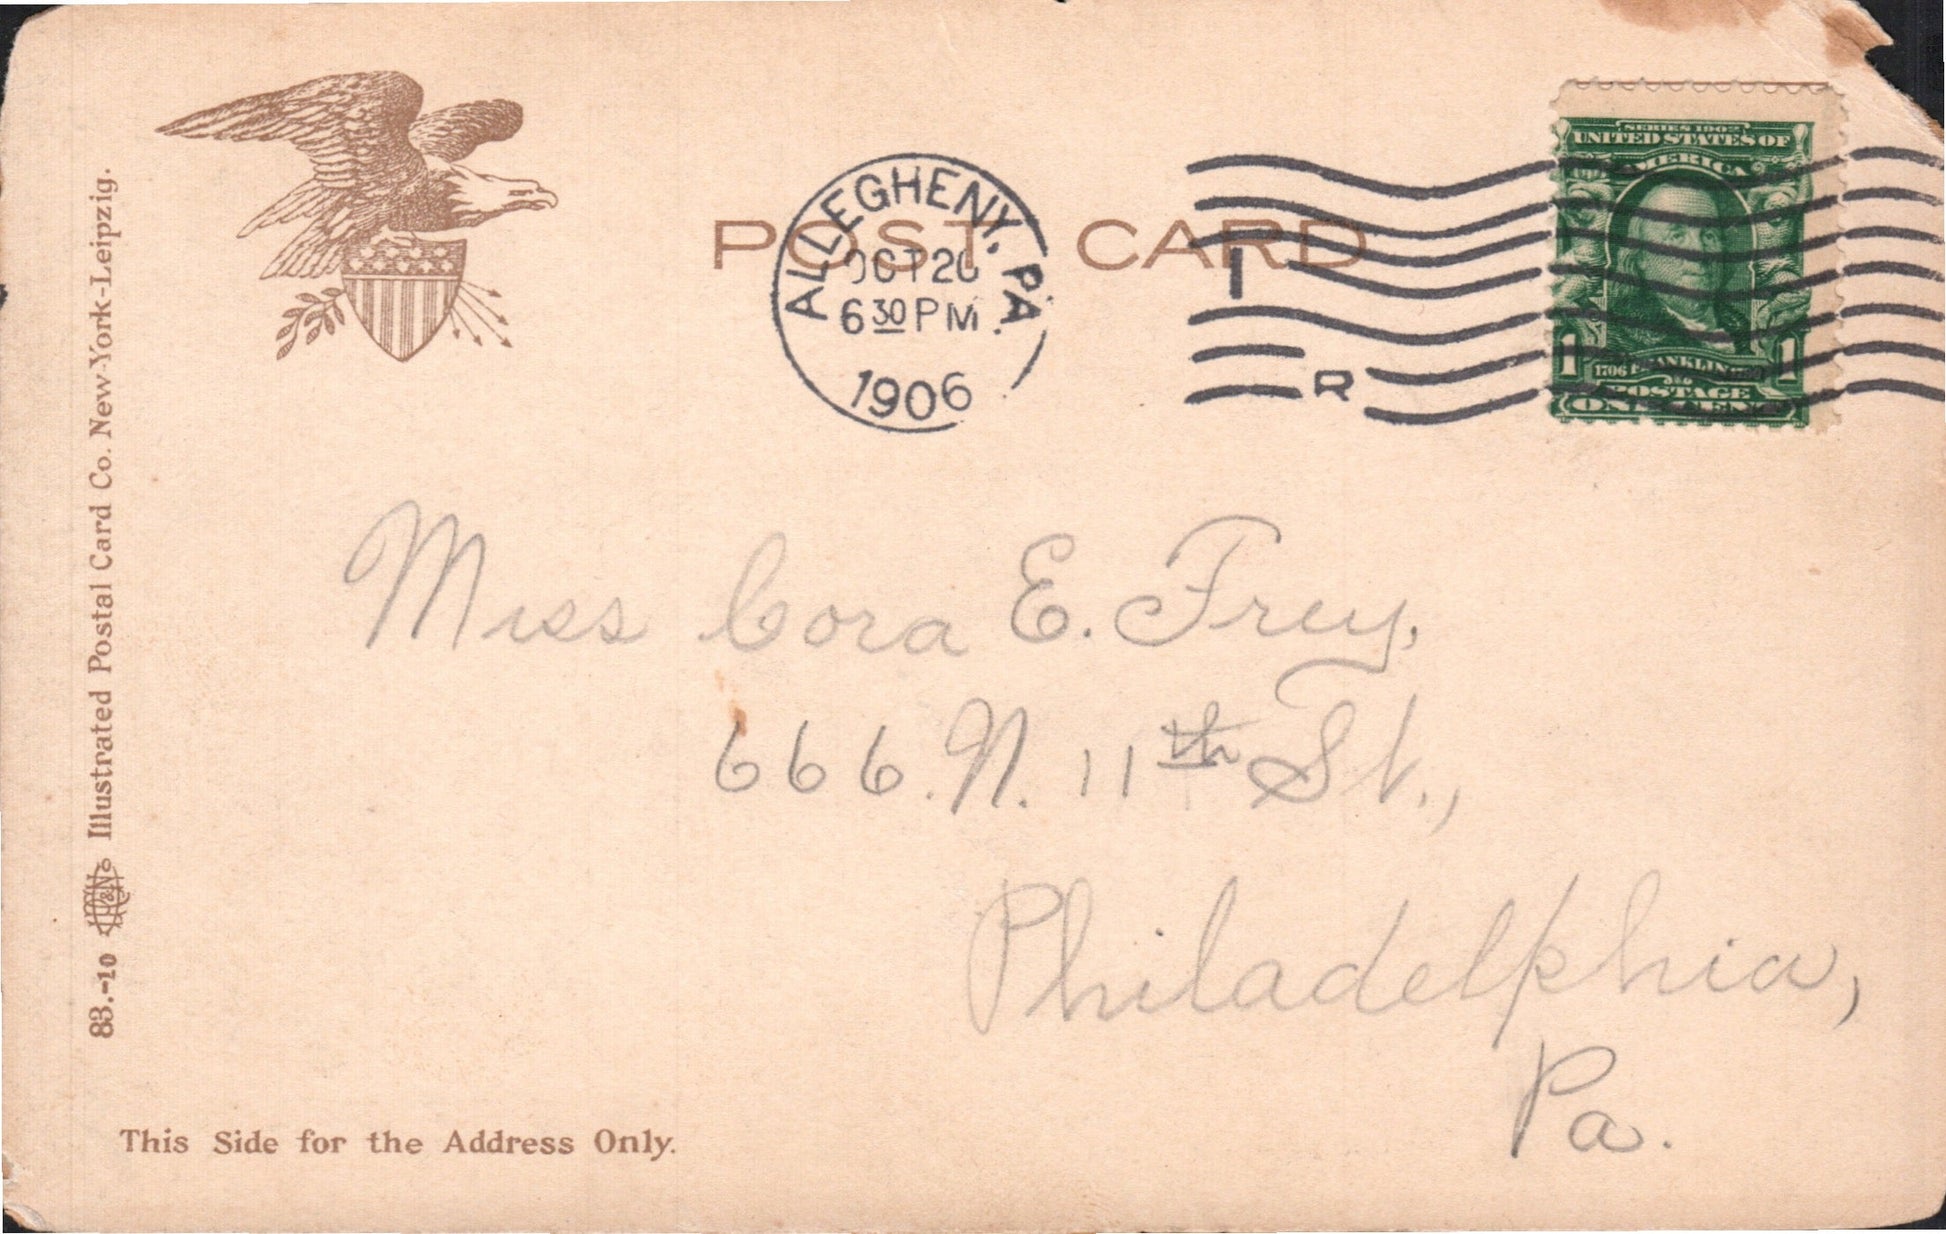 POST CARD
ALLEGHENY, PA.
OCT 20
6 30 PM
1906
I
R
SERIES 1902
UNITED STATES OF
AMERICA
1 1
1706 FRANKLIN 1790
POSTAGE
ONE CENT
Miss Cora E. Frey,
666. N. 11th St.,
Philadelphia,
Pa.
This Side for the Address Only.
83.-10 Illustrated Postal Card Co. New-York-Leipzig.